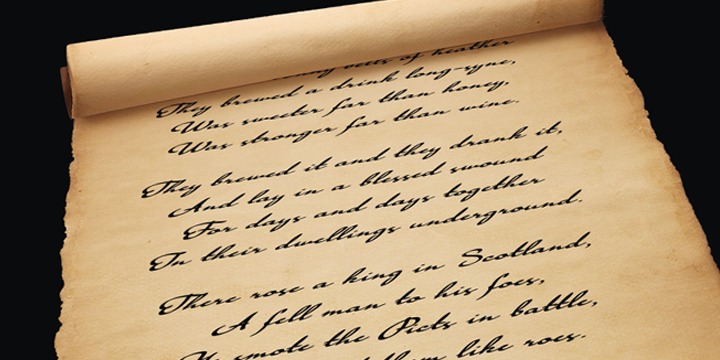 bells of heather
They brewed a drink long-syne,
Was sweeter far than honey,
Was stronger far than wine.
They brewed it and they drank it,
And lay in a blessed swound
For days and days together
In their dwellings underground.
There rose a king in Scotland,
A fell man to his foes,
He smote the Picts in battle,
them like roes.